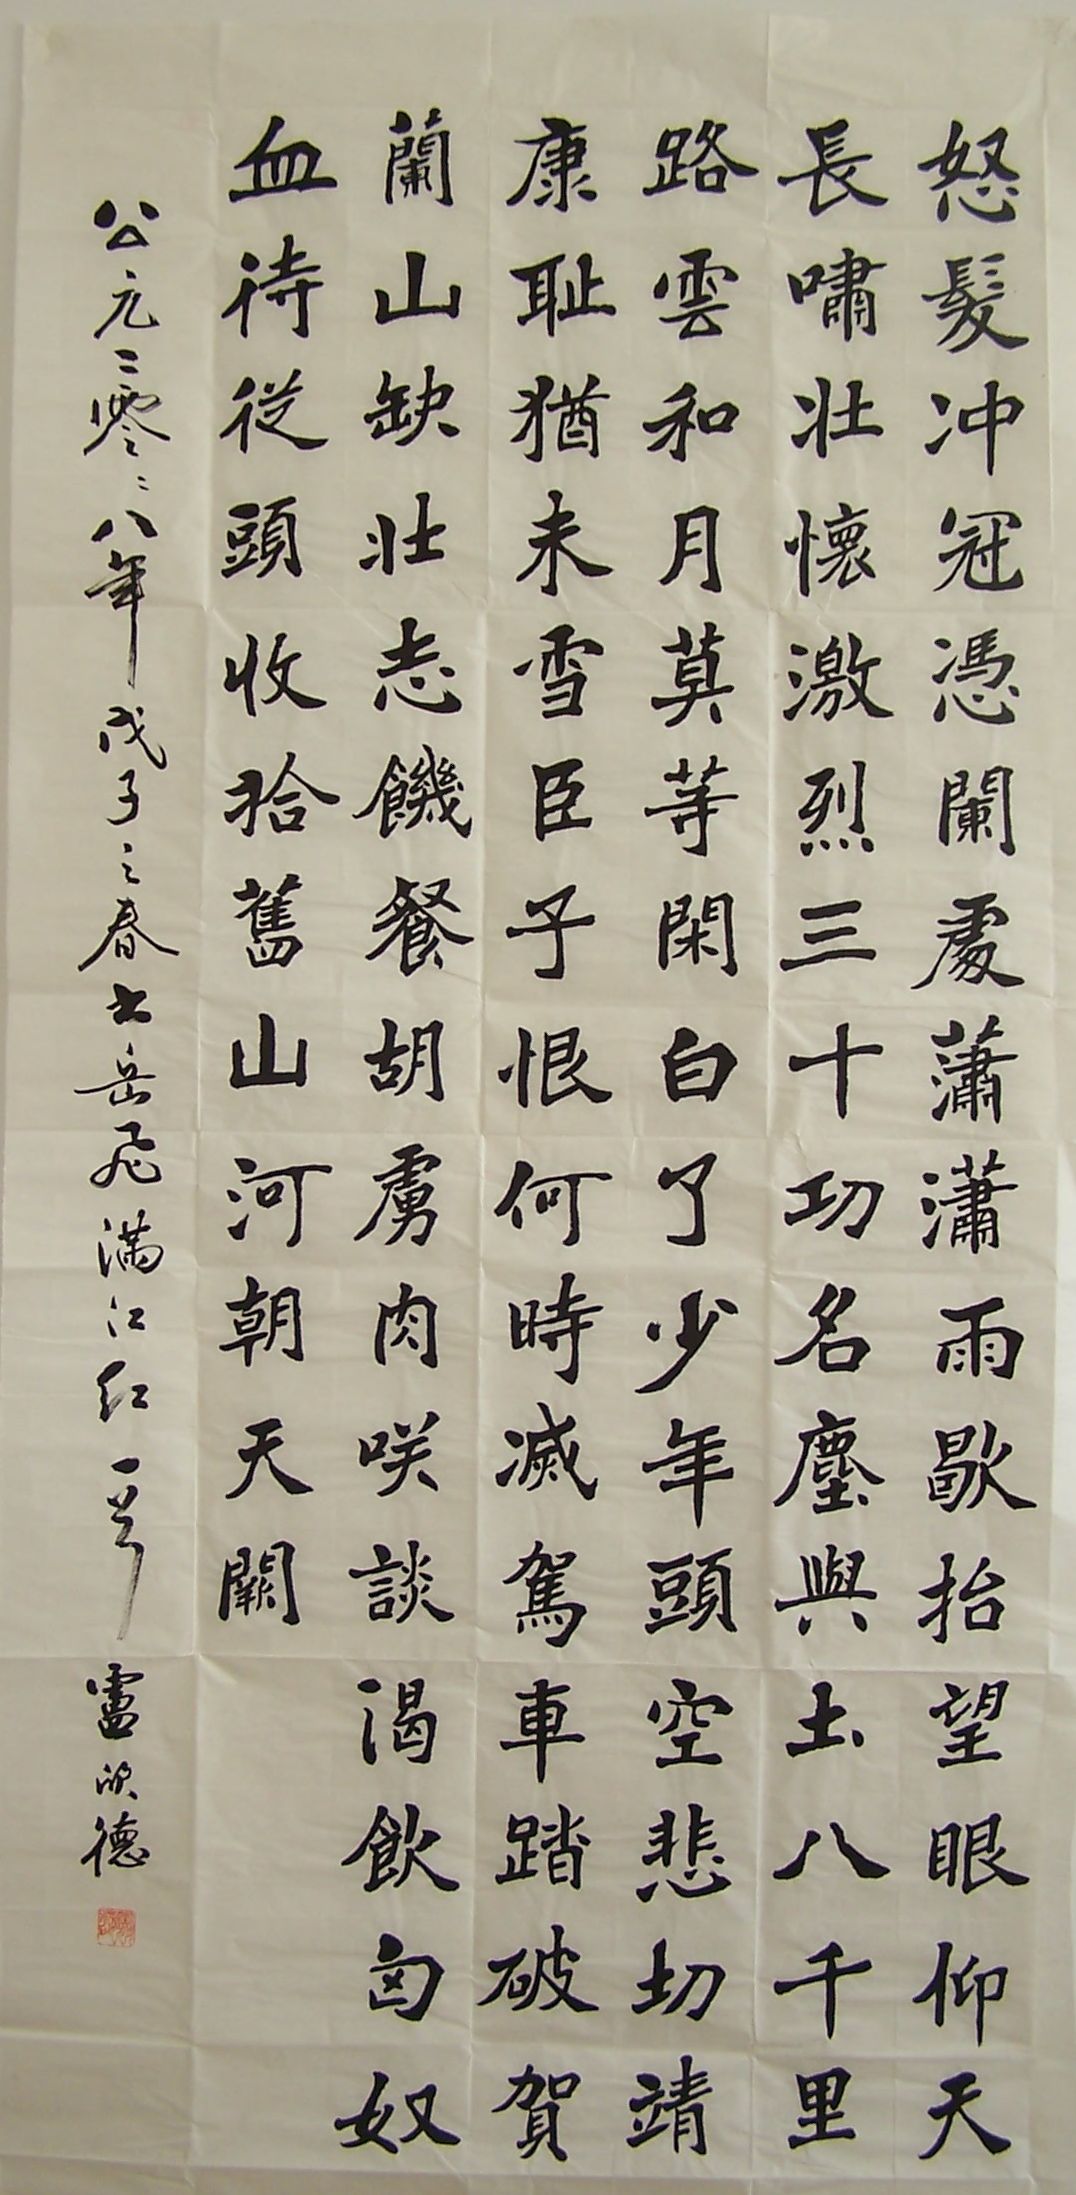 怒髮冲冠憑闌處瀟瀟雨歇抬望眼仰天
長嘯壯懷激烈三十功名塵與土八千里
路雲和月莫等閑白了少年頭空悲切靖
康耻猶未雪臣子恨何時滅駕車踏破賀
蘭山缺壯志饑餐胡虜肉咲談渴飲匈奴
血待從頭收拾舊山河朝天闕
公元二零零八年戊子之春书岳飛满江红一首 盧欣德